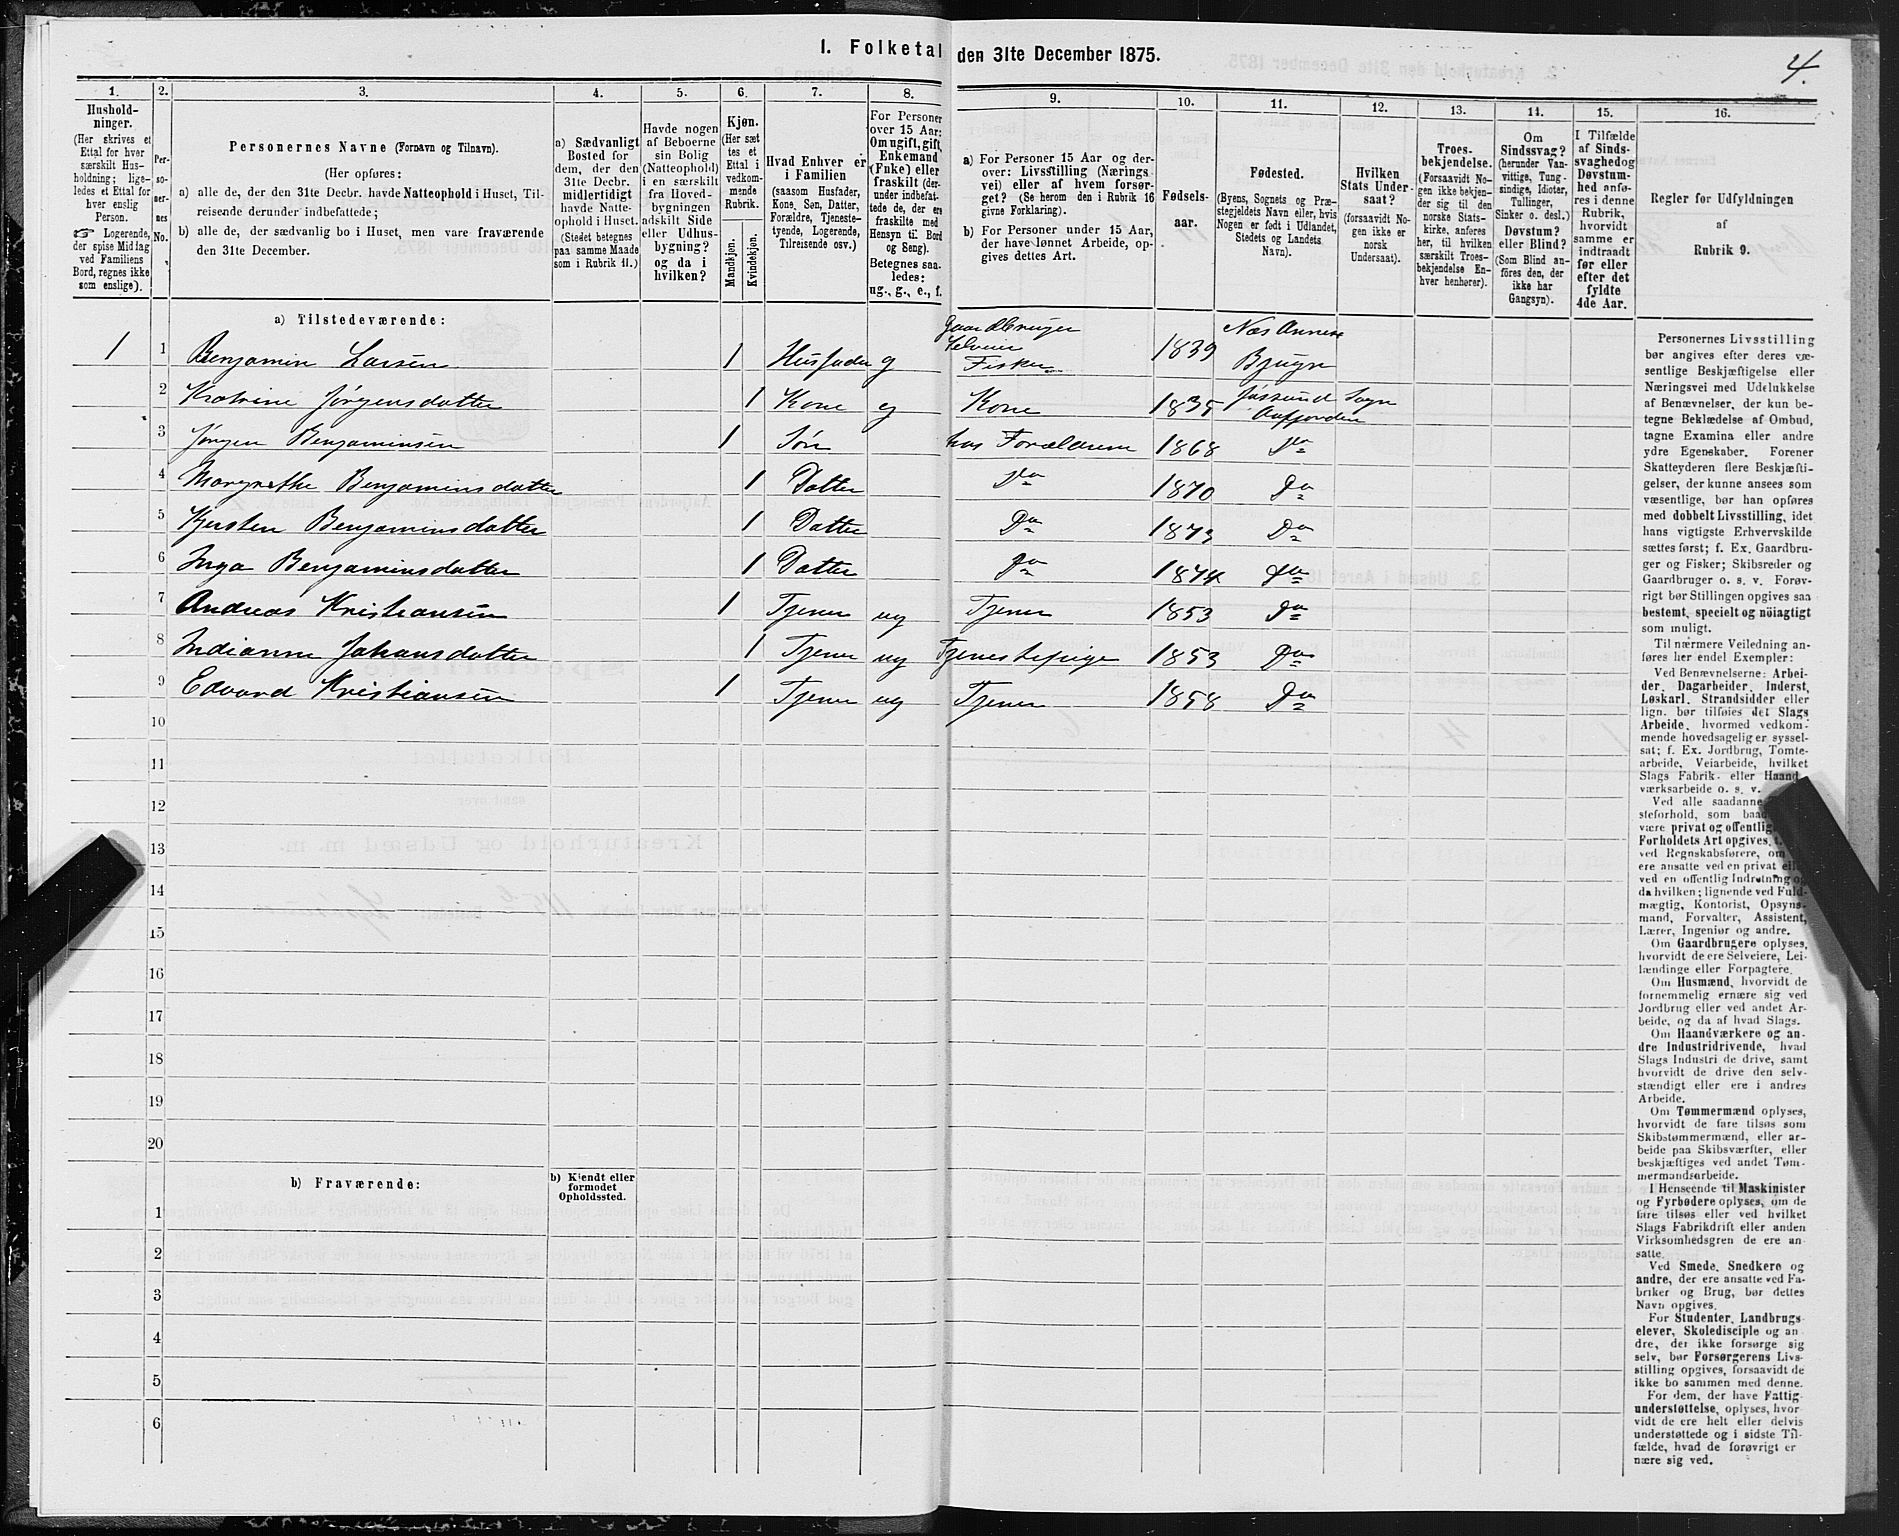 I. Folketal den 31te December 1875.
4.
1. 2. 3. 4. 5. 6. 7. 8. 9. 10. 11. 12. 13. 14. 15. 16.
Hushold-
ninger.
(Her skrives et
Ettal for hver
særskilt Hus-
holdning; lige-
ledes et Ettal for
hver enslig
Person.
☞ Logerende,
der spise Middag
ved Familiens
Bord, regnes ikke
som enslige).
Per-
so-
ner-
nes
No.
Personernes Navne (Fornavn og Tilnavn).
(Her opføres:
a) alle de, der den 31te Decbr. havde Natteophold i Huset, Til-
reisende derunder indbefattede;
b) alle de, der sædvanlig bo i Huset, men vare fraværende
den 31te December.
a) Sædvanligt
Bosted for
dem, der den
31te Decbr.
midlertidigt
havde Natte-
ophold i Huset.
(Stedet betegnes
paa samme Maade
som i Rubrik 11.)
Havde nogen
af Beboerne
sin Bolig
(Natteophold)
i en særskilt
fra Hoved-
bygningen
adskilt Side
eller Udhus-
bygning?
og da i
hvilken?
Kjøn.
(Her sæt
tes et
Ettal i
vedkom-
mende
Rubrik.
Mandkjøn.
Kvindekjøn.
Hvad Enhver er
i Familien
(saasom Husfader,
Kone, Søn, Datter,
Forældre, Tjeneste-
tyende, Logerende,
Tilreisende osv.)
For Personer
over 15 Aar:
Om ugift, gift,
Enkemand
(Enke) eller
fraskilt (der-
under indbefat-
tede de, der ere
fraskilte med
Hensyn til Bord
og Seng).
Betegnes saa-
ledes:
ug., g., e., f.
a) For Personer 15 Aar og der-
over: Livsstilling (Nærings
vei) eller af hvem forsør-
get? (Se herom den i Rubrik 16
givne Forklaring).
b) For Personer under 15 Aar,
der have lønnet Arbeide, op-
gives dettes Art.
Fødsels-
aar.
Fødested.
(Byens, Sognets og Præ-
stegjeldets Navn eller, hvis
Nogen er født i Udlandet,
Stedets og Landets
Navn).
Hvilken
Stats Under-
saat?
(forsaavidt No-
gen ikke er
norsk
Undersaat).
Troes-
bekjendelse.
(Forsaavidt No-
gen ikke bekjen-
der sig til den
norske Stats-
kirke, anføres
her, til hvilken
særskilt Troes-
bekjendelse En-
hver henhører).
Om
Sindssvag?
(herunder Van-
vittige, Tung-
sindige, Idioter,
Tullinger,
Sinker o. desl.)
Døvstum?
eller Blind?
(Som Blind an-
føres den, der
ikke har
Gangsyn).
I Tilfælde
af Sinds-
svaghedog
Døvstum-
hed anfø-
res i denne
Rubrik,
hvorvidt
samme er
indtraadt
før eller
efter det
fyldte
4de Aar.
Regler for Udfyldningen
af
Rubrik 9.
a) Tilstedeværende:
1 1 Benjamin Larsen 1 Husfader g Gaardbruger Selveier Fisker 1839 Næs Annex Bjugn
2 Katrine Jørgensdatter 1 Kone g Kone 1835 Jøssund Sogn Aafjorden
3 Jørgen Benjaminsen 1 Søn hos Forældrene 1868 Do
4 Margrethe Benjaminsdatter 1 Datter Do 1870 Do
5 Kjersten Benjaminsdatter 1 Datter Do 1873 Do
6 Inga Benjaminsdatter 1 Datter Do 1874 Do
7 Andreas Kristiansen 1 Tjener ug Tjener 1853 Do
8 Indianne Johansdatter 1 Tjener ug Tjenestepige 1853 Do
9 Edvard Kristiansen 1 Tjener ug Tjener 1858 Do
10
11
12
13
14
15
16
17
18
19
20
b) Fraværende:
b) Kjendt eller
formodet
Opholdssted.
1
2
3
4
5
6
Personernes Livsstilling
bør angives efter deres væ-
sentlige Beskjæftigelse eller
Næringsvei med Udelukkelse
af Benævnelser, der kun be-
tegne Beklædelse af Ombud,
tagne Examina eller andre
ydre Egenskaber. Forener
Skatteyderen flere Beskjæfti-
gelser, der kunne ansees som
væsentlige, bør han opføres
med dobbelt Livsstilling, idet
hans vigtigste Erhvervskilde
sættes først; f. Ex. Gaardbru-
ger og Fisker; Skibsreder og
Gaardbruger o. s. v. Forøv-
rigt bør Stillingen opgives saa
bestemt, specielt og nöiagtigt
som muligt.
Til nærmere Veiledning an-
føres her endel Exempler:
Ved Benævnelserne: Arbei-
der, Dagarbeider, Inderst,
Løskarl, Strandsidder eller
lign. bør tilføies det Slags
Arbeide, hvormed vedkom-
mende hovedsagelig er syssel-
sat; f. Ex. Jordbrug, Tomte-
arbeide, Veiarbeide, hvilket
Slags Fabrik- eller Haand-
værksarbeide o. s. v.
Ved alle saadanne
steforhold, som baa
være privat og offentlig
Forholdets Art opgives,
ved Regnskabsførere, om
ere ansatte ved en privat
ved en offentlig Indretning og
da hvilken; lignende ved Fuld-
mægtig, Kontorist, Opsyns-
mand, Forvalter, Assistent,
Lærer, Ingeniør og andre.
Om Gaardbrugere oplyses,
hvorvidt de ere Selveiere, Lei-
lændinge eller Forpagtere.
Om Husmænd, hvorvidt de
fornemmelig ernære sig ved
Jordbrug eller ved andet Ar-
beide, og da af hvad Slags.
Om Haandværkere og an-
dre Industridrivende, hvad
Slags Industri de drive, samt
hvorvidt de drive den selv-
stændigt eller ere i andres
Arbeide.
Om Tømmermænd oplyses,
hvorvidt de fare tilsøs som
Skibstømmermænd, eller ar-
beide paa Skibsværfter, eller
beskjæftiges ved andet Tøm-
mermandsarbeide.
I Henseende til Maskinister
og Fyrbødere oplyses, om de
fare tilsøs eller ved hvilket
Slags Fabrikdrift eller anden
Virksomhedsgren de ere an-
satte.
Ved Smede, Snedkere og
andre, der ere ansatte ved Fa-
briker og Brug, bør dettes
Navn opgives.
For Studenter, Landbrugs-
elever, Skoledisciple og an-
dre, der ikke forsørge sig
selv, bør Forsørgerens Livs-
stilling opgives, forsaavidt de
ikke bo sammen med denne.
For dem, der have Fattig-
understøttelse, oplyses, hvor-
vidt de ere helt eller delvis
understøttede og i sidste Til-
fælde, hvad de forøvrigt er
nære sig ved.